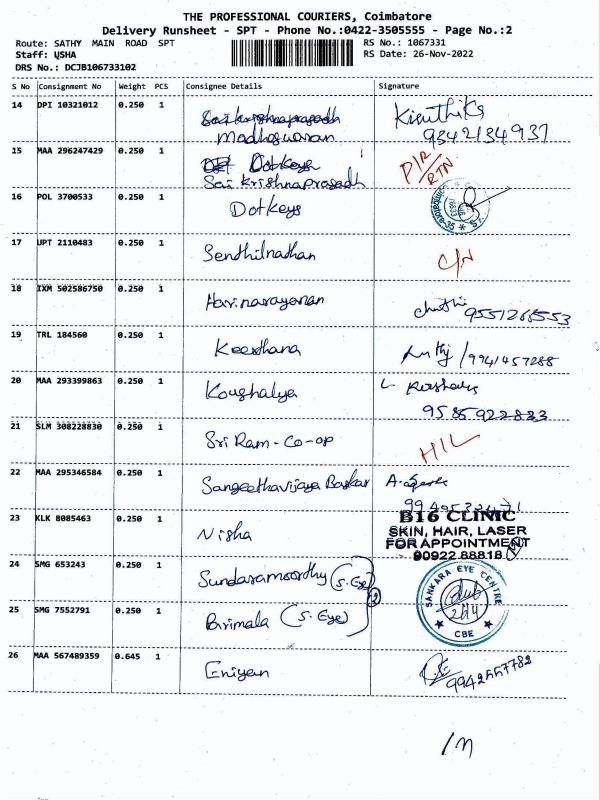 THE PROFESSIONAL COURIERS, Coimbatore
Delivery Runsheet - SPT - Phone No.:0422-3505555 - Page No.:2
Route: SATHY MAIN ROAD SPT
RS No.: 1067331
Staff: USHA
RS Date: 26-Nov-2022
DRS No.: DCJB106733102
S No Consignment No Weight PCS Consignee Details Signature
14 DPI 10321012 0.250 1 Saikrishnaprasadh Kieuthiks
Madheswaran 9342134937
15 MAA 296247429 0.250 1 Dotkeys D/R/RTN
Sai krishnaprasadh
16 POL 3700533 0.250 1 Dotkeys
17 UPT 2110483 0.250 1 Sendhilnadhan C/N
18 IXM 502586750 0.250 1 Harinarayanan 9551268553
19 TRL 184560 0.250 1 Keerthana /9941457288
20 MAA 293399863 0.250 1 Koushalya
9585922883
21 SLM 308228830 0.250 1 Sri Ram-Co-op H/L
22 MAA 295346584 0.250 1 Sangeethavijaya Baskar
23 KLK 8085463 0.250 1 Nisha B16 CLINIC
SKIN, HAIR, LASER
FOR APPOINTMENT
90922 88818
24 SMG 653243 0.250 1 Sundaramoorthy (S. Eye) SANKARA EYE CENTRE
25 SMG 7552791 0.250 1 Birimala (S. Eye) CBE
26 MAA 567489359 0.645 1 Eniyan 9942557782